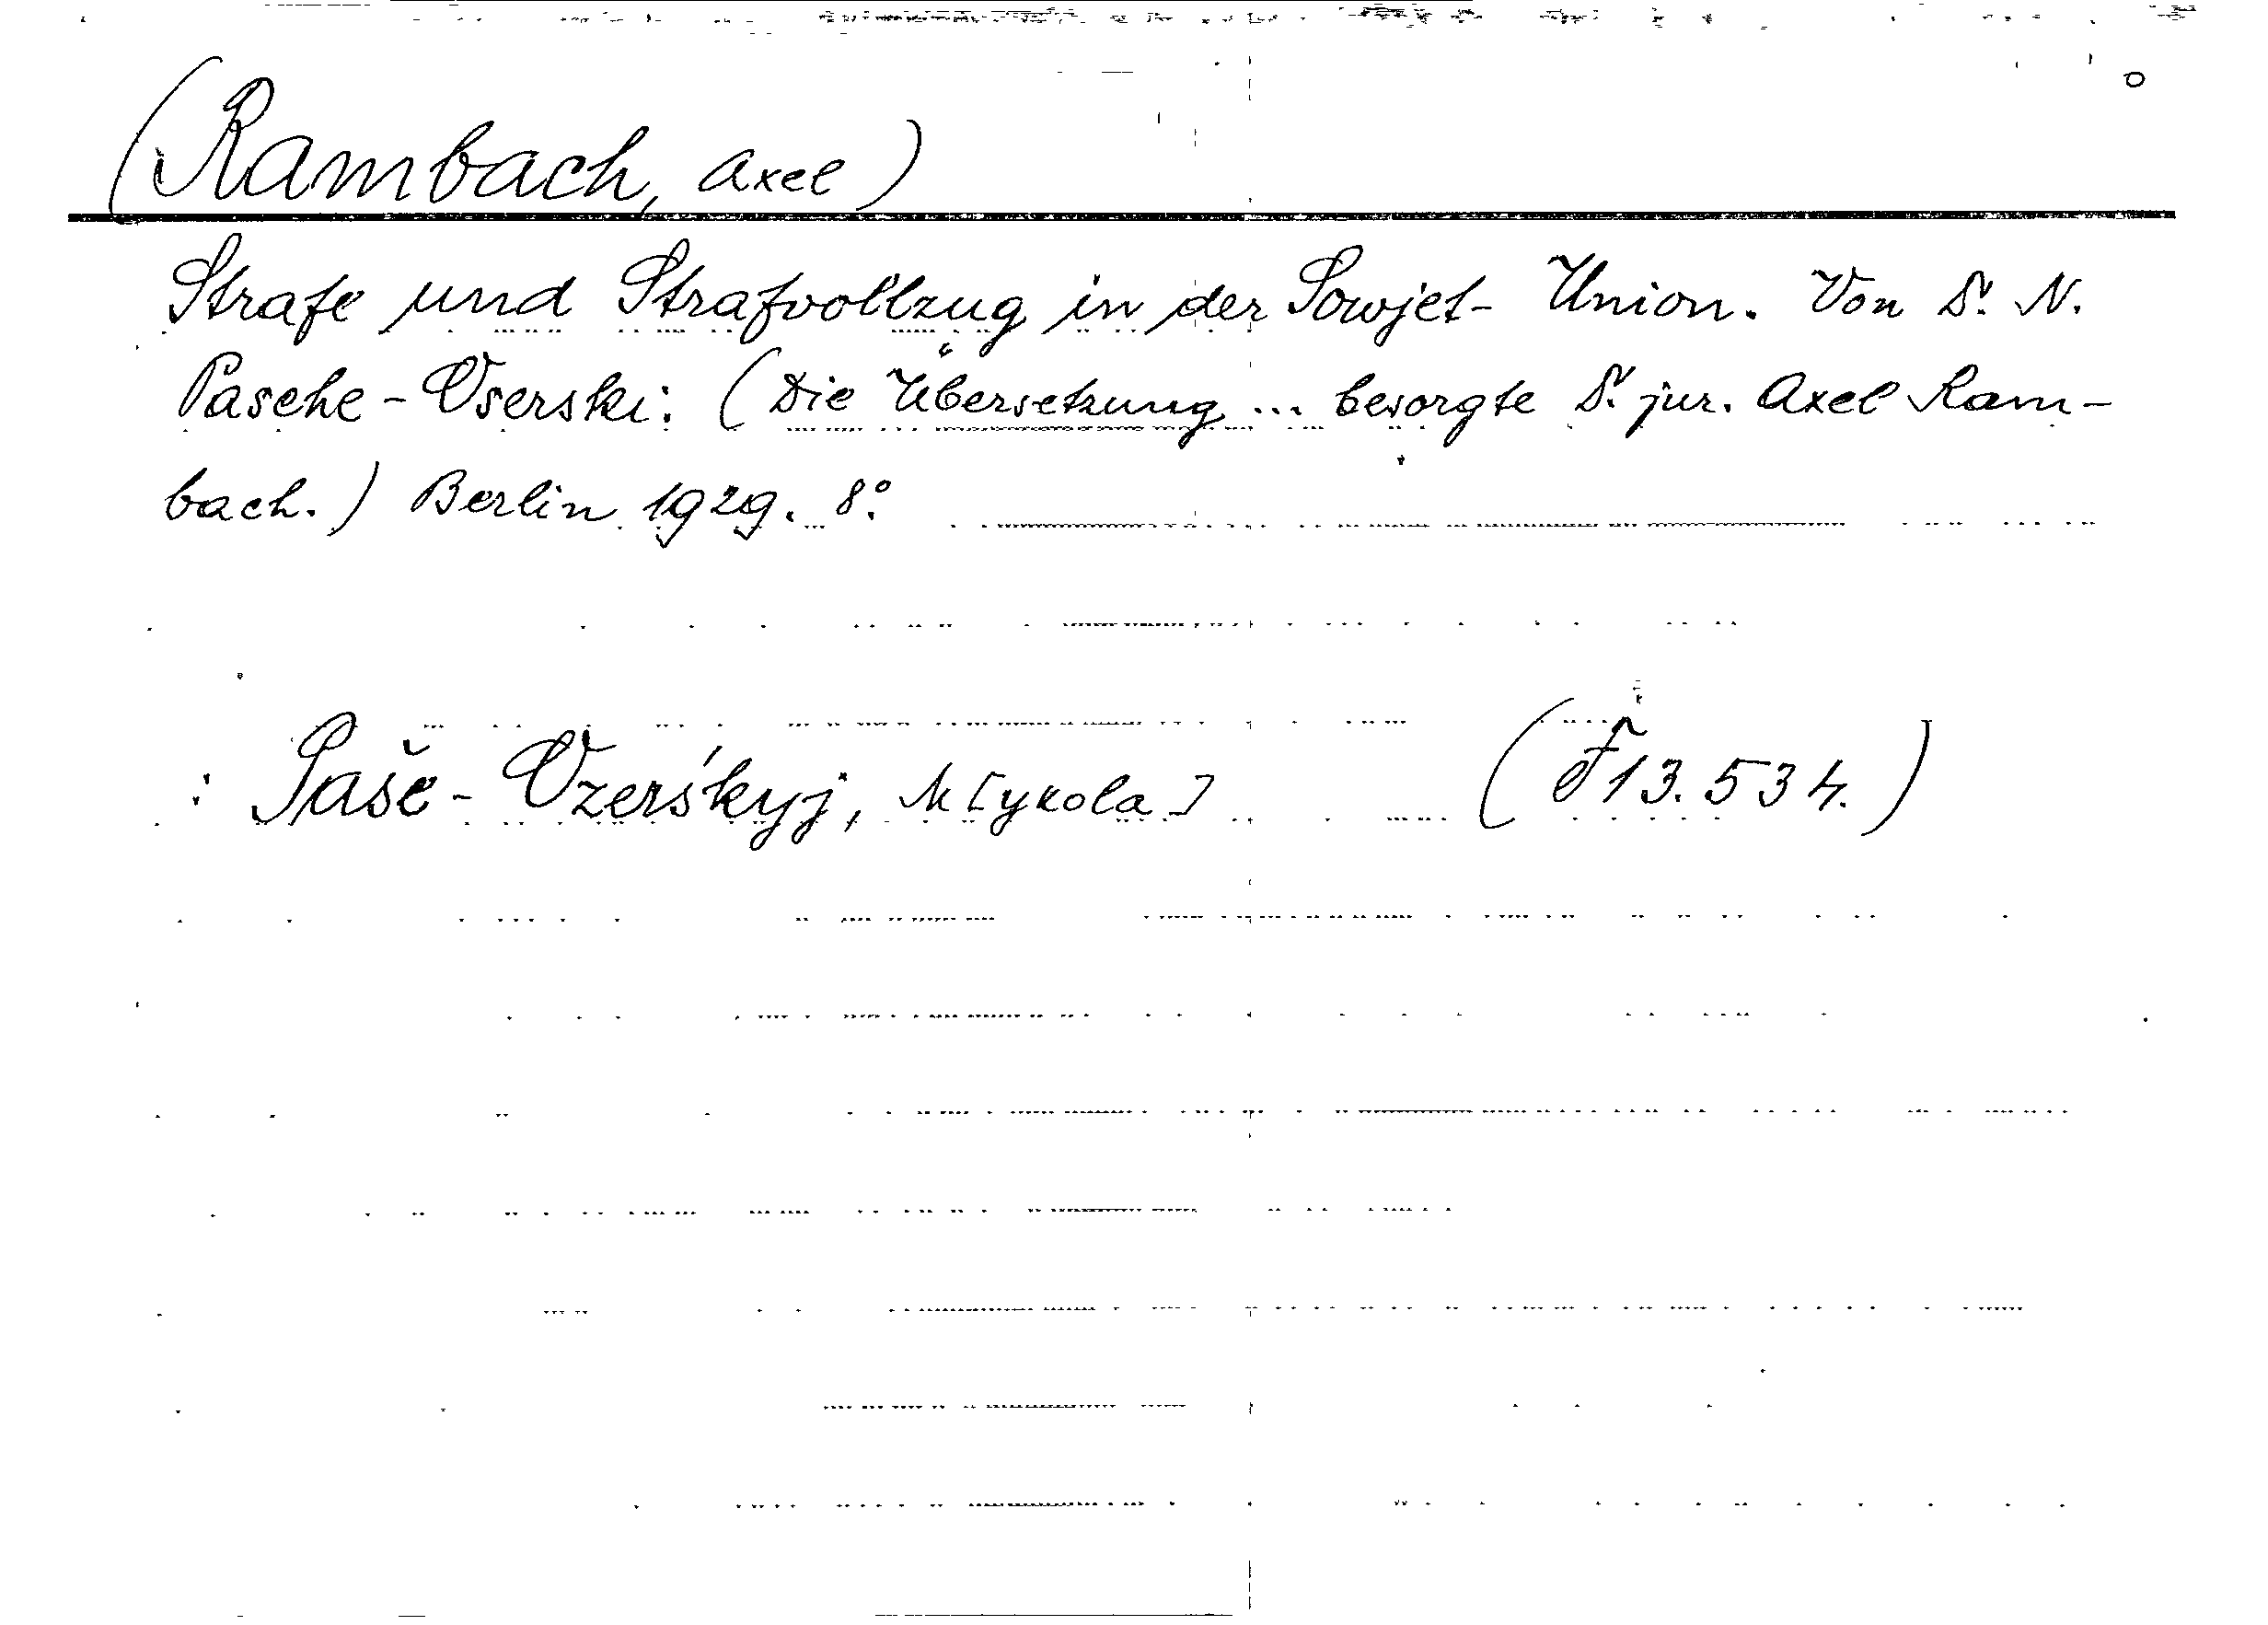 (Rambach, Axel)
Strafe und Strafvollzug in der Sowjet-Union. Von Dr. N.
Pasche-Oserski. (Die Übersetzung ... besorgte Dr. jur. Axel Ram-
bach.) Berlin 1929. 8°.
: Paše-Ozerśkyj, M[ykola] (F 13.534.)